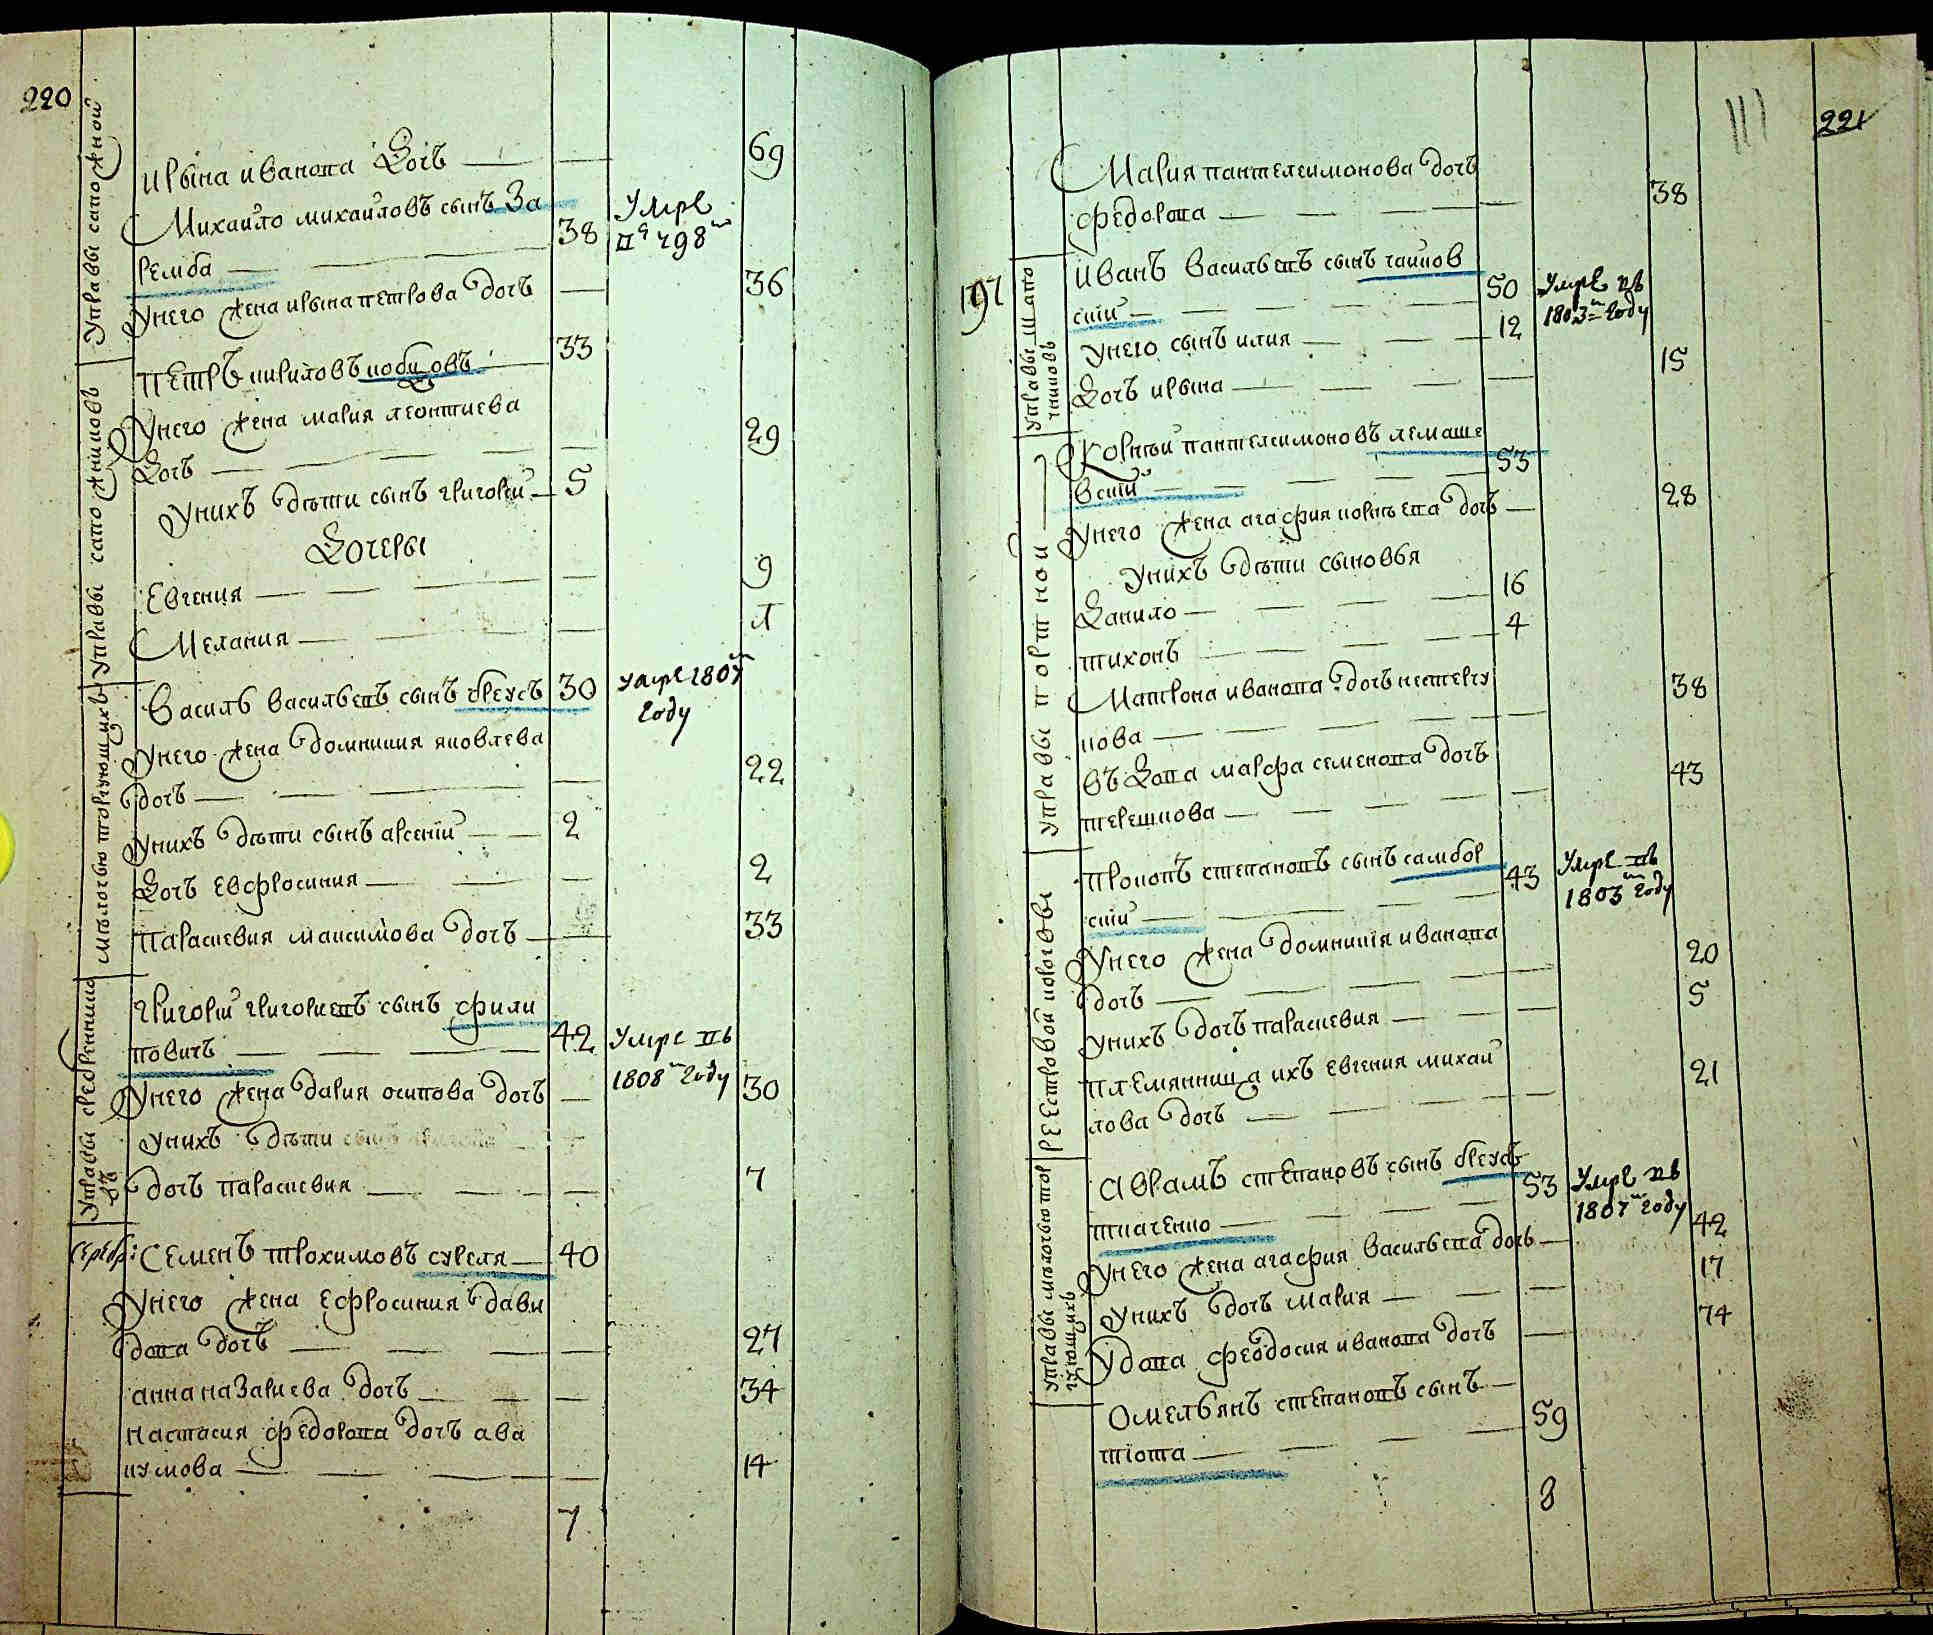 220
Управы сапожной
Ирына иванова Дочь 69
Михайло михайловъ сынъ За
ремба 38 Умре в 798м
Унего жена ирына петрова дочь 36
Управы сапожниковъ
Петръ кириловъ кобцовъ 33
Унего жена мария леонтиева
Дочь 29
Унихъ дѣти сынъ григорий 5
Дочеры
Евгения 9
Мелания
мѣлочью торгующихъ
Василь васильевъ сынъ бреусъ 30 умре 1807м
году
Унего жена домникия яковлева
дочь 22
Унихъ дѣти сынъ арсений 2
Дочь евфросиния 2
Параскевия максимова дочь 33
Управы сребренико
въ
григорий григориевъ сынъ фили
повичъ 42 Умре въ
1808м году
Унего жена дария осипова дочь 30
Унихъ дѣти сынъ
дочь параскевия 7
серебр:
Семенъ трохимовъ суреля 40
Унего жена ефросиния дави
дова дочь 27
анна назариева дочь 34
настасия федорова дочь ава
кумова 14
7
221
Мария пантелеимонова дочь
федорова 38
197
Управы шапо
чниковъ
иванъ васильевъ сынъ чайков
ский 50 Умре въ
1803м году
унего сынъ илия 12
Дочь ирына 15
Управы портной
Корнѣй пантелеимоновъ лемаше
вский 53
Унего жена агафия корнѣева дочь 28
Унихъ дѣти сыновья
Данило 16
тихонъ 4
Матрона иванова дочь нестерчу
кова 38
въдова марфа семенова дочь
терешкова 43
Реестровой корогвы
Прокопъ степановъ сынъ самбор
ский 43 Умре въ
1803м году
Унего жена домникия иванова
дочь 20
унихъ дочь параскевия 5
племянница ихъ евгения михай
лова дочь 21
управы мѣлочью тор
гующихъ
Аврамъ степановъ сынъ бреусъ
ткаченко 53 Умре въ
1807м году
унего жена агафия васильева дочь 42
унихъ дочь мария 17
Удова феодосия иванова дочь 74
Омельянъ степановъ сынъ
тиота 59
8